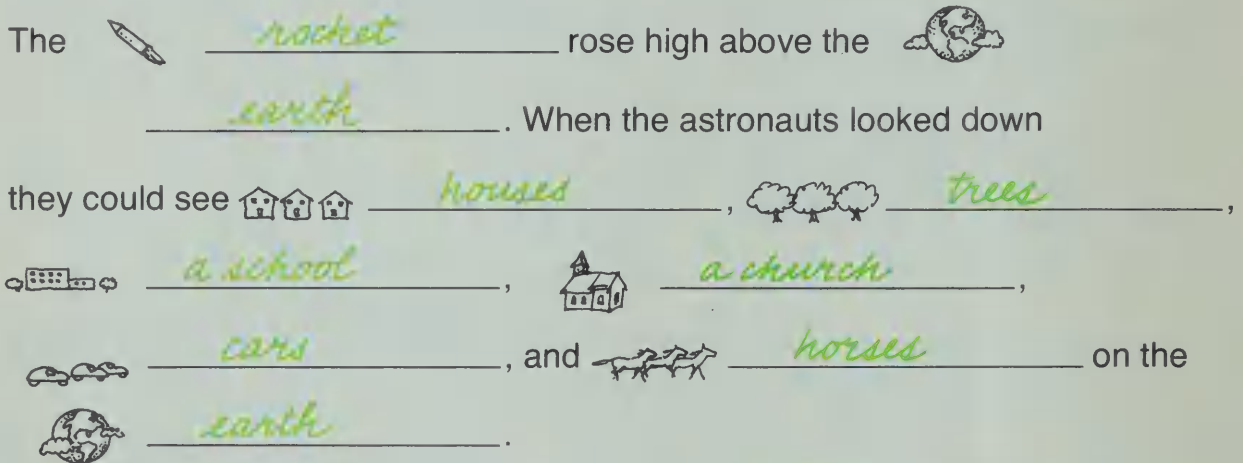 The rocket rose high above the
earth. When the astronauts looked down
they could see houses, trees,
a school, a church,
cars, and horses on the
earth.